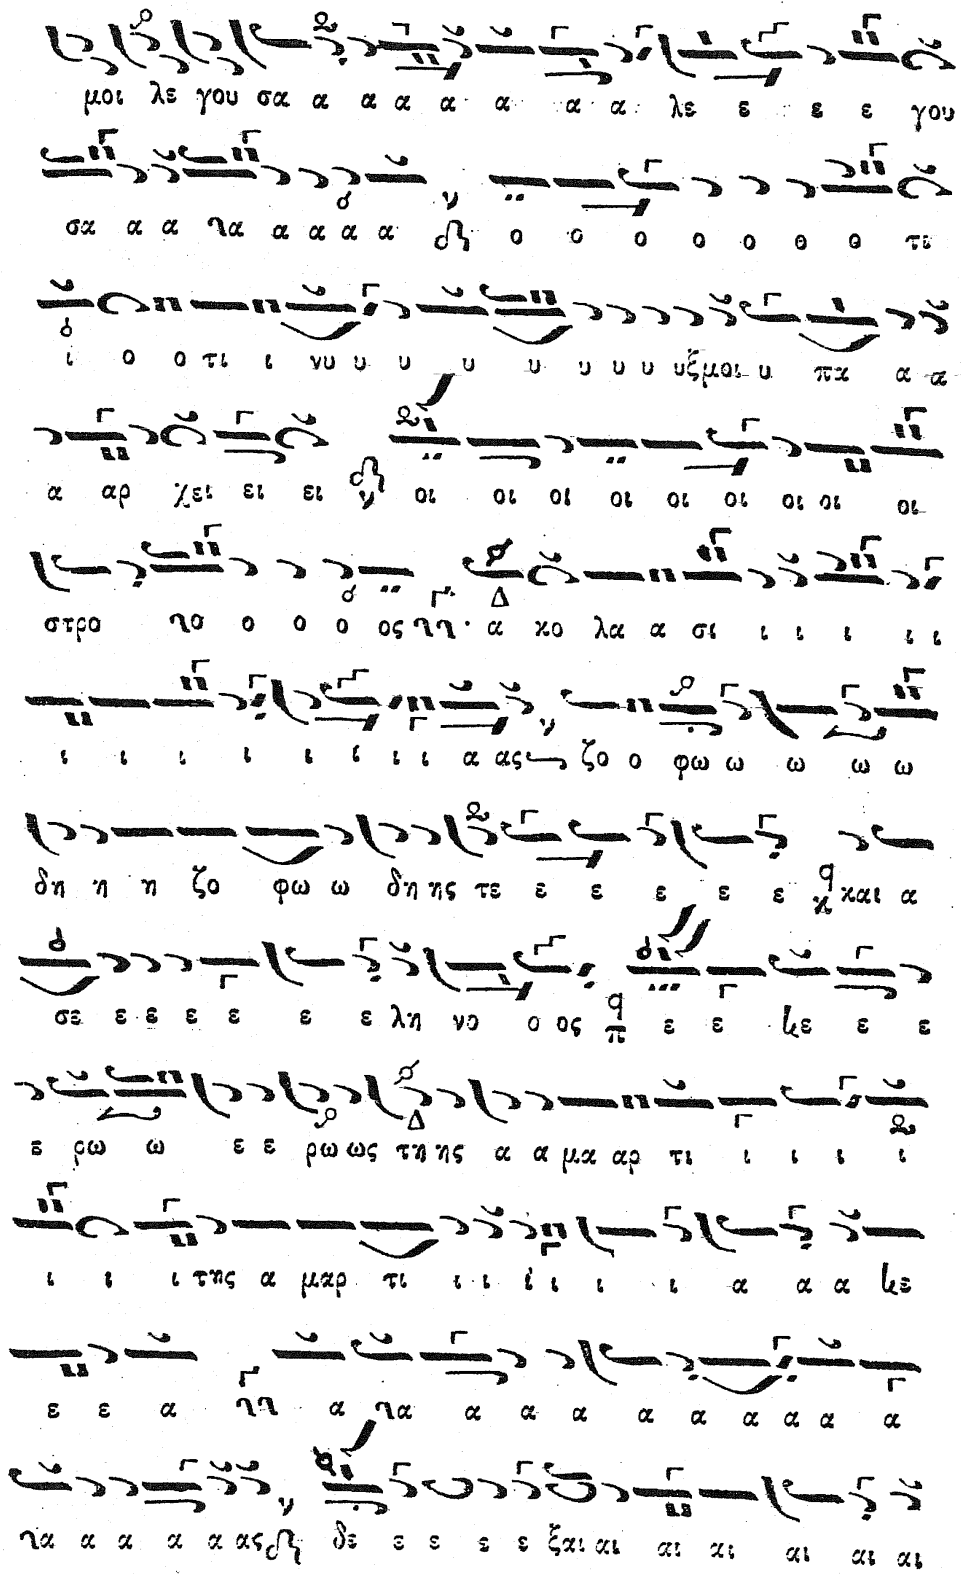 μοι λε γου σα α α α α α α α λε ε ε ε γου
σα α α τα α α α α ο ο ο ο ο ο ο τι
ι ο ο τι ι νυ υ υ υ υ υ υ υ υξ μοι υ πα α α
α αρ χει ει ει οι οι οι οι οι οι οι οι οι
στρο το ο ο ο ος α κο λα α σι ι ι ι ι ι
ι ι ι ι ι ι ι ι α ας ζο ο φω ω ω ω ω
δη η η ζο φω ω δη ης τε ε ε ε ε ε και α
σε ε ε ε ε ε ε λη νο ο ος ε ε κε ε ε
ε ρω ω ε ε ρω ως τη ης α α μα αρ τι ι ι ι ι
ι ι ι της α μαρ τι ι ι ι ι ι ι α α α κε
ε ε α α τα α α α α α α α α α
τα α α α α ας δε ε ε ε ε ξαι αι αι αι αι αι αι